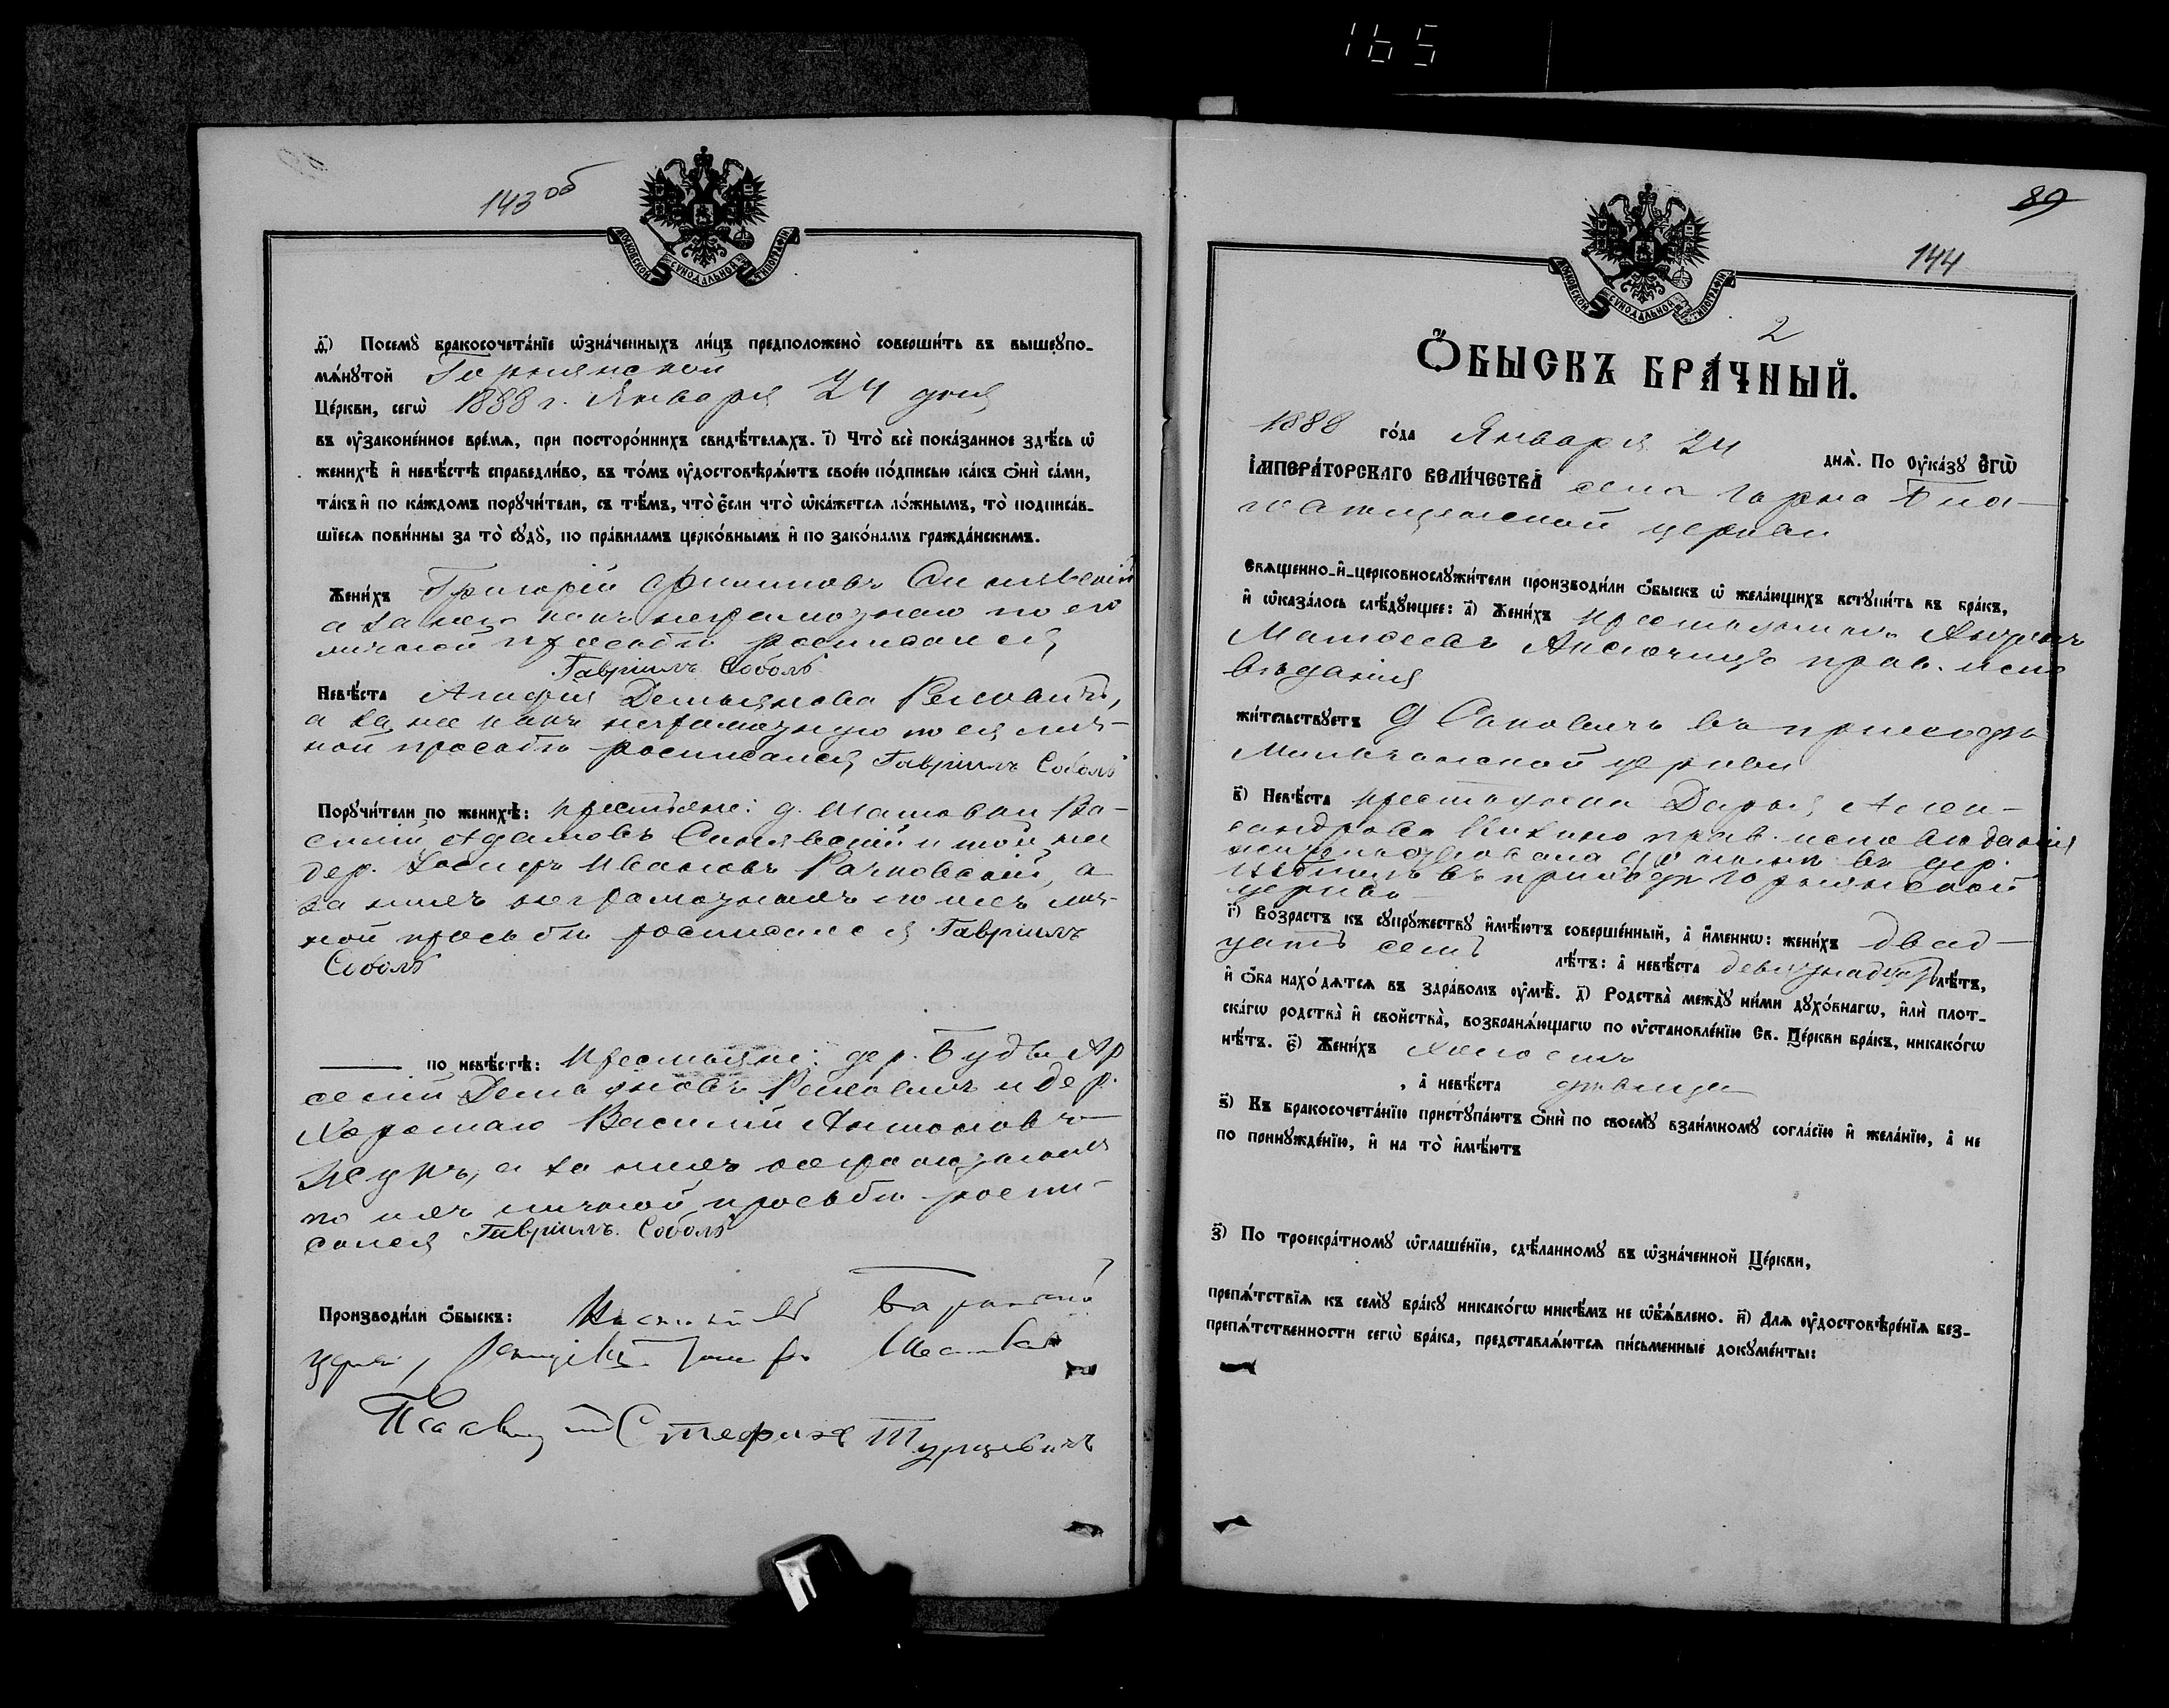 165
143 об
МОСКОВСКОЙ СѴНОДАЛЬНОЙ ТИПОГРАФІИ
д҃) Посемꙋ̀ бракосочета́нїе ѡ҆зна́ченныхъ ли́цъ предположено̀ соверши́ть въ вышеꙋпо-
мѧ́нꙋтой Горнянской
Це́ркви, сегѡ̀ 1888 г. Января 24 дня
въ ᲂу҆зако́ненное вре́мѧ, при посторо́ннихъ свидѣ́телѧхъ. і҃) Что̀ всѐ пока́занное здѣ́сь ѡ҆
женихѣ̀ и҆ невѣ́стѣ справедли́во, въ то́мъ ᲂу҆достовѣрѧ́ютъ свое́ю по́дписью ка́къ ѻ҆нѝ са́ми,
та́къ и҆ по ка́ждомъ порꙋчи́тели, съ тѣ́мъ, что̀ є҆́сли что̀ ѡ҆ка́жетсѧ ло́жнымъ, то̀ подписа́в-
шїесѧ пови́нны за то̀ сꙋдꙋ̀, по пра́виламъ церко́внымъ и҆ по зако́намъ гражда́нскимъ.
Жени́хъ Григорій Синявскій
а за него какъ неграмотнаго по его
личной просьбѣ росписался
Гавріилъ Соболь
Невѣ́ста Агафія Демьянова
а за нее какъ неграмотную по ея лич-
ной просьбѣ росписался Гавріилъ Соболь
Порꙋчи́тели по женихѣ̀: крестьяне: д. Ва-
силій Адамовъ Синявскій и той же
дер. Іосифъ Ивановъ Рачковскій, а
за нихъ неграмотныхъ по ихъ лич-
ной просьбѣ росписался Гавріилъ
Соболь
по невѣ́стѣ: Крестьяне: дер. Буды Ар
сеній Демьяновъ и дер.
Василій Антоновъ
а за нихъ неграмотныхъ
по ихъ личной просьбѣ роспи-
сался Гавріилъ Соболь
Производи́ли ѻ҆́быскъ:
Псаломщ Стефанъ Турцевичъ
89
144
МОСКОВСКОЙ СѴНОДАЛЬНОЙ ТИПОГРАФІИ
2
Ѻ҆́БЫСКЪ БРА́ЧНЫЙ.
1888 го́да Января 24 днѧ̀. По ᲂу҆ка́зꙋ Є҆гѡ̀
І҆МПЕРА́ТОРСКАГО ВЕЛИ́ЧЕСТВА̀ села Горна Бла-
говѣщенской церкви
Свѧще́нно-и҆-церковнослꙋжи́тели производи́ли ѻ҆́быскъ ѡ҆ жела́ющихъ встꙋпи́ть въ бра́къ,
и҆ ѡ҆каза́лось слѣ́дꙋющее: а҃) Жени́хъ крестьянинъ Андрей
Матѳеевъ прав. испо
вѣданія
жи́тельствꙋетъ д Саковичъ въ приходѣ
Мильчанской церкви
в҃) Невѣ́ста крестьянка Дарья Алек-
сандрова прав. исповѣданія
жительствовала до нынѣ въ дер.
въ приходѣ Горнянской
церкви
г҃) Во́зрастъ къ сꙋпрꙋ́жествꙋ и҆мѣ́ютъ соверше́нный, а҆ и҆́меннѡ: жени́хъ двад-
цать семь лѣ́тъ: а҆ невѣ́ста девятнадцать лѣ́тъ,
и҆ ѻ҆́ба нахо́дѧтсѧ въ здра́вомъ ᲂу҆мѣ̀. д҃) Родства̀ междꙋ̀ ни́ми дꙋхо́внагѡ, и҆лѝ плот-
ска́гѡ родства̀ и҆ сво́йства̀, возбранѧ́ющагѡ по ᲂу҆становле́нїю Св. Це́ркви бра́къ, никако́гѡ
нѣ́тъ. є҃) Жени́хъ холостъ
, а҆ невѣ́ста дѣвица
ѕ҃) Къ бракосочета́нїю пристꙋпа́ютъ ѻ҆нѝ по своемꙋ̀ взаи́мномꙋ согла́сїю и҆ жела́нїю, а҆ не
по принꙋжде́нїю, и҆ на то̀ и҆мѣ́ютъ
з҃) По троекра́тномꙋ ѡ҆глаше́нїю, сдѣ́ланномꙋ въ ѡ҆зна́ченной Це́ркви,
препѧ́тствїѧ къ семꙋ̀ бра́кꙋ никако́гѡ никѣ́мъ не ѡ҆б̾ѧ́влено. и҃) Для ᲂу҆достовѣре́нїѧ без-
препѧ́тственности сегѡ̀ бра́ка, представлѧ́ютсѧ пи́сьменные докꙋме́нты: